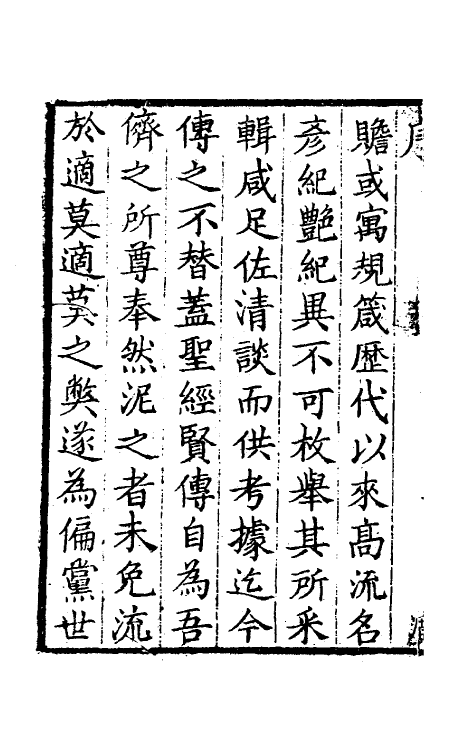 贍或寓規箴歷代以來高流名
彥紀艷紀異不可枚舉其所采
輯咸足佐清談而供考據迄今
傳之不替蓋聖經賢傳自為吾
儕之所尊奉然泥之者未免流
於適莫適莫之獘遂為偏黨世